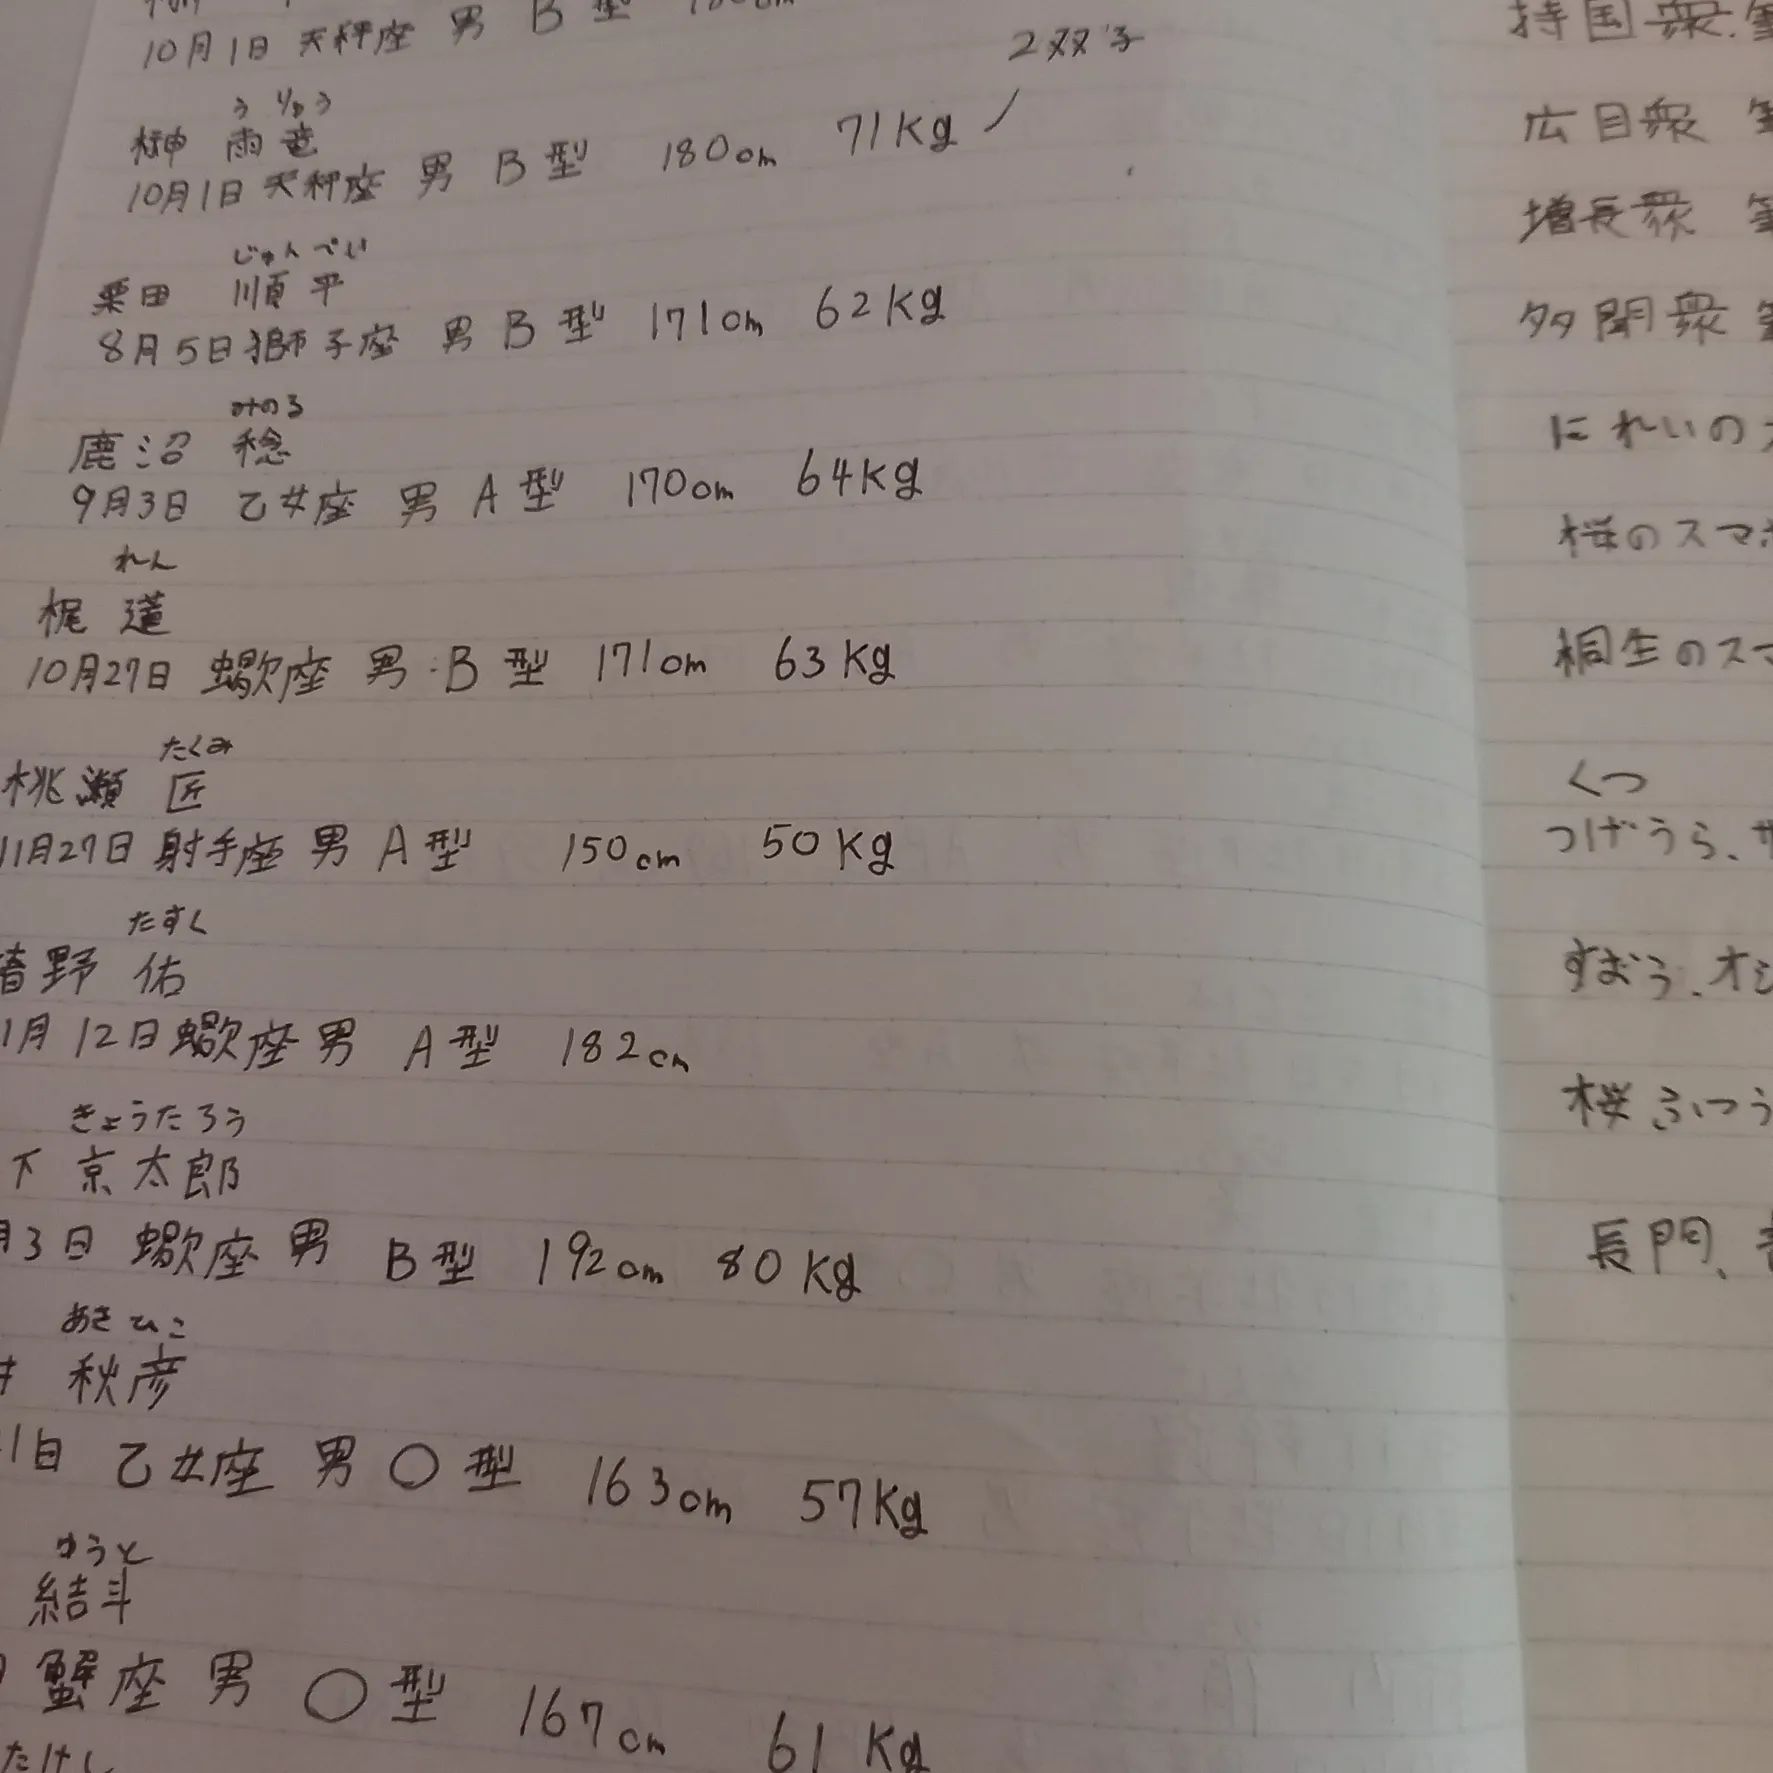 10月1日 天秤座 男 B型 180cm
2双子
うりゅう
榊 雨竜
10月1日 天秤座 男 B型 180cm 71kg
じゅんぺい
栗田 順平
8月5日 獅子座 男 B型 171cm 62kg
みのる
鹿沼 稔
9月3日 乙女座 男 A型 170cm 64kg
れん
梶 蓮
10月27日 蠍座 男 B型 171cm 63kg
たくみ
桃瀬 匠
11月27日 射手座 男 A型 150cm 50kg
たすく
野 佑
1月12日 蠍座 男 A型 182cm
きょうたろう
下 京太郎
月3日 蠍座 男 B型 192cm 80kg
あきひこ
秋彦
1日 乙女座 男 〇型 163cm 57kg
ゆうと
結斗
蟹座 男 〇型 167cm 61kg
たけし
持国衆、
広目衆
増長衆
多聞衆
にれいの
桜のスマ
桐生のスマ
くつ
つげうら、サ
すおう、オシ
桜ふつう
長門、